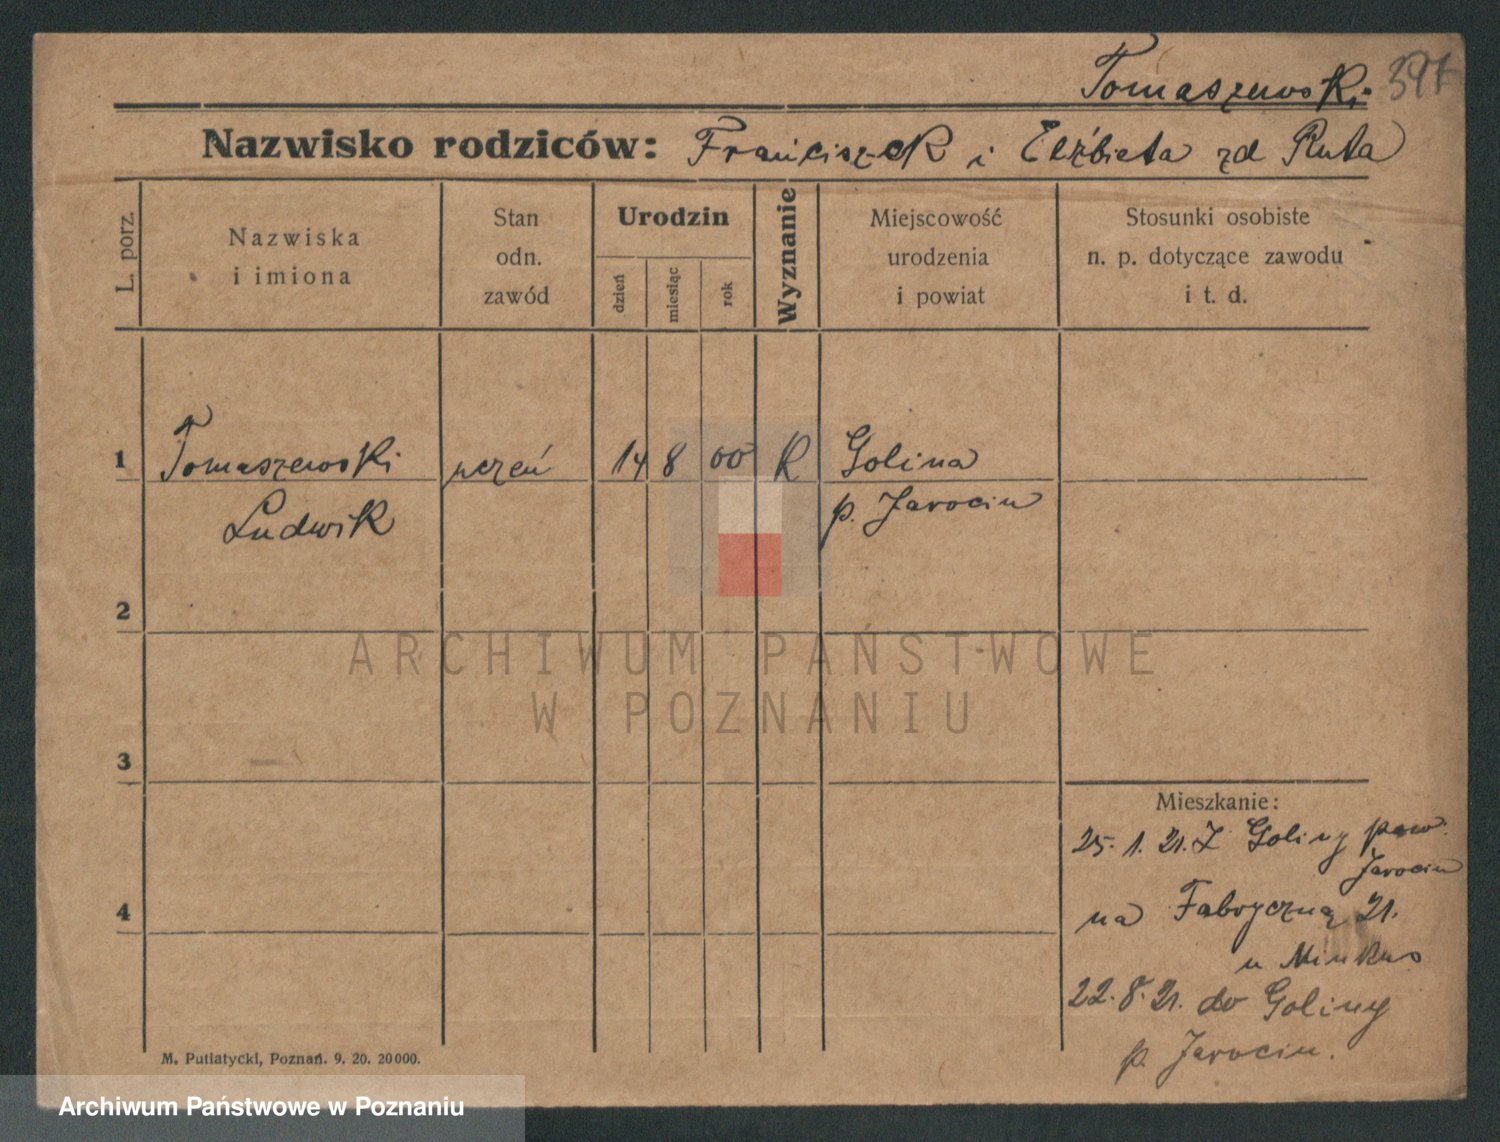 Tomaszewski 397
Nazwisko rodziców: Franciszek i Elżbieta zd Ruta
L. porz.
Nazwiska
i imiona
Stan
odn.
zawód
Urodzin
dzień
miesiąc
rok
Wyznanie
Miejscowość
urodzenia
i powiat
Stosunki osobiste
n. p. dotyczące zawodu
i t. d.
1 Tomaszewski uczeń 14 8 00 R Golina
Ludwik p. Jarocin
2
3
4
Mieszkanie:
25. 1. 21. Z Goliny pow.
Jarocin
na Fabryczną 21.
u
22. 8. 21. do Goliny
p. Jarocin.
M. Putiatycki, Poznań. 9. 20. 20000.
ARCHIWUM PAŃSTWOWE
W POZNANIU
Archiwum Państwowe w Poznaniu